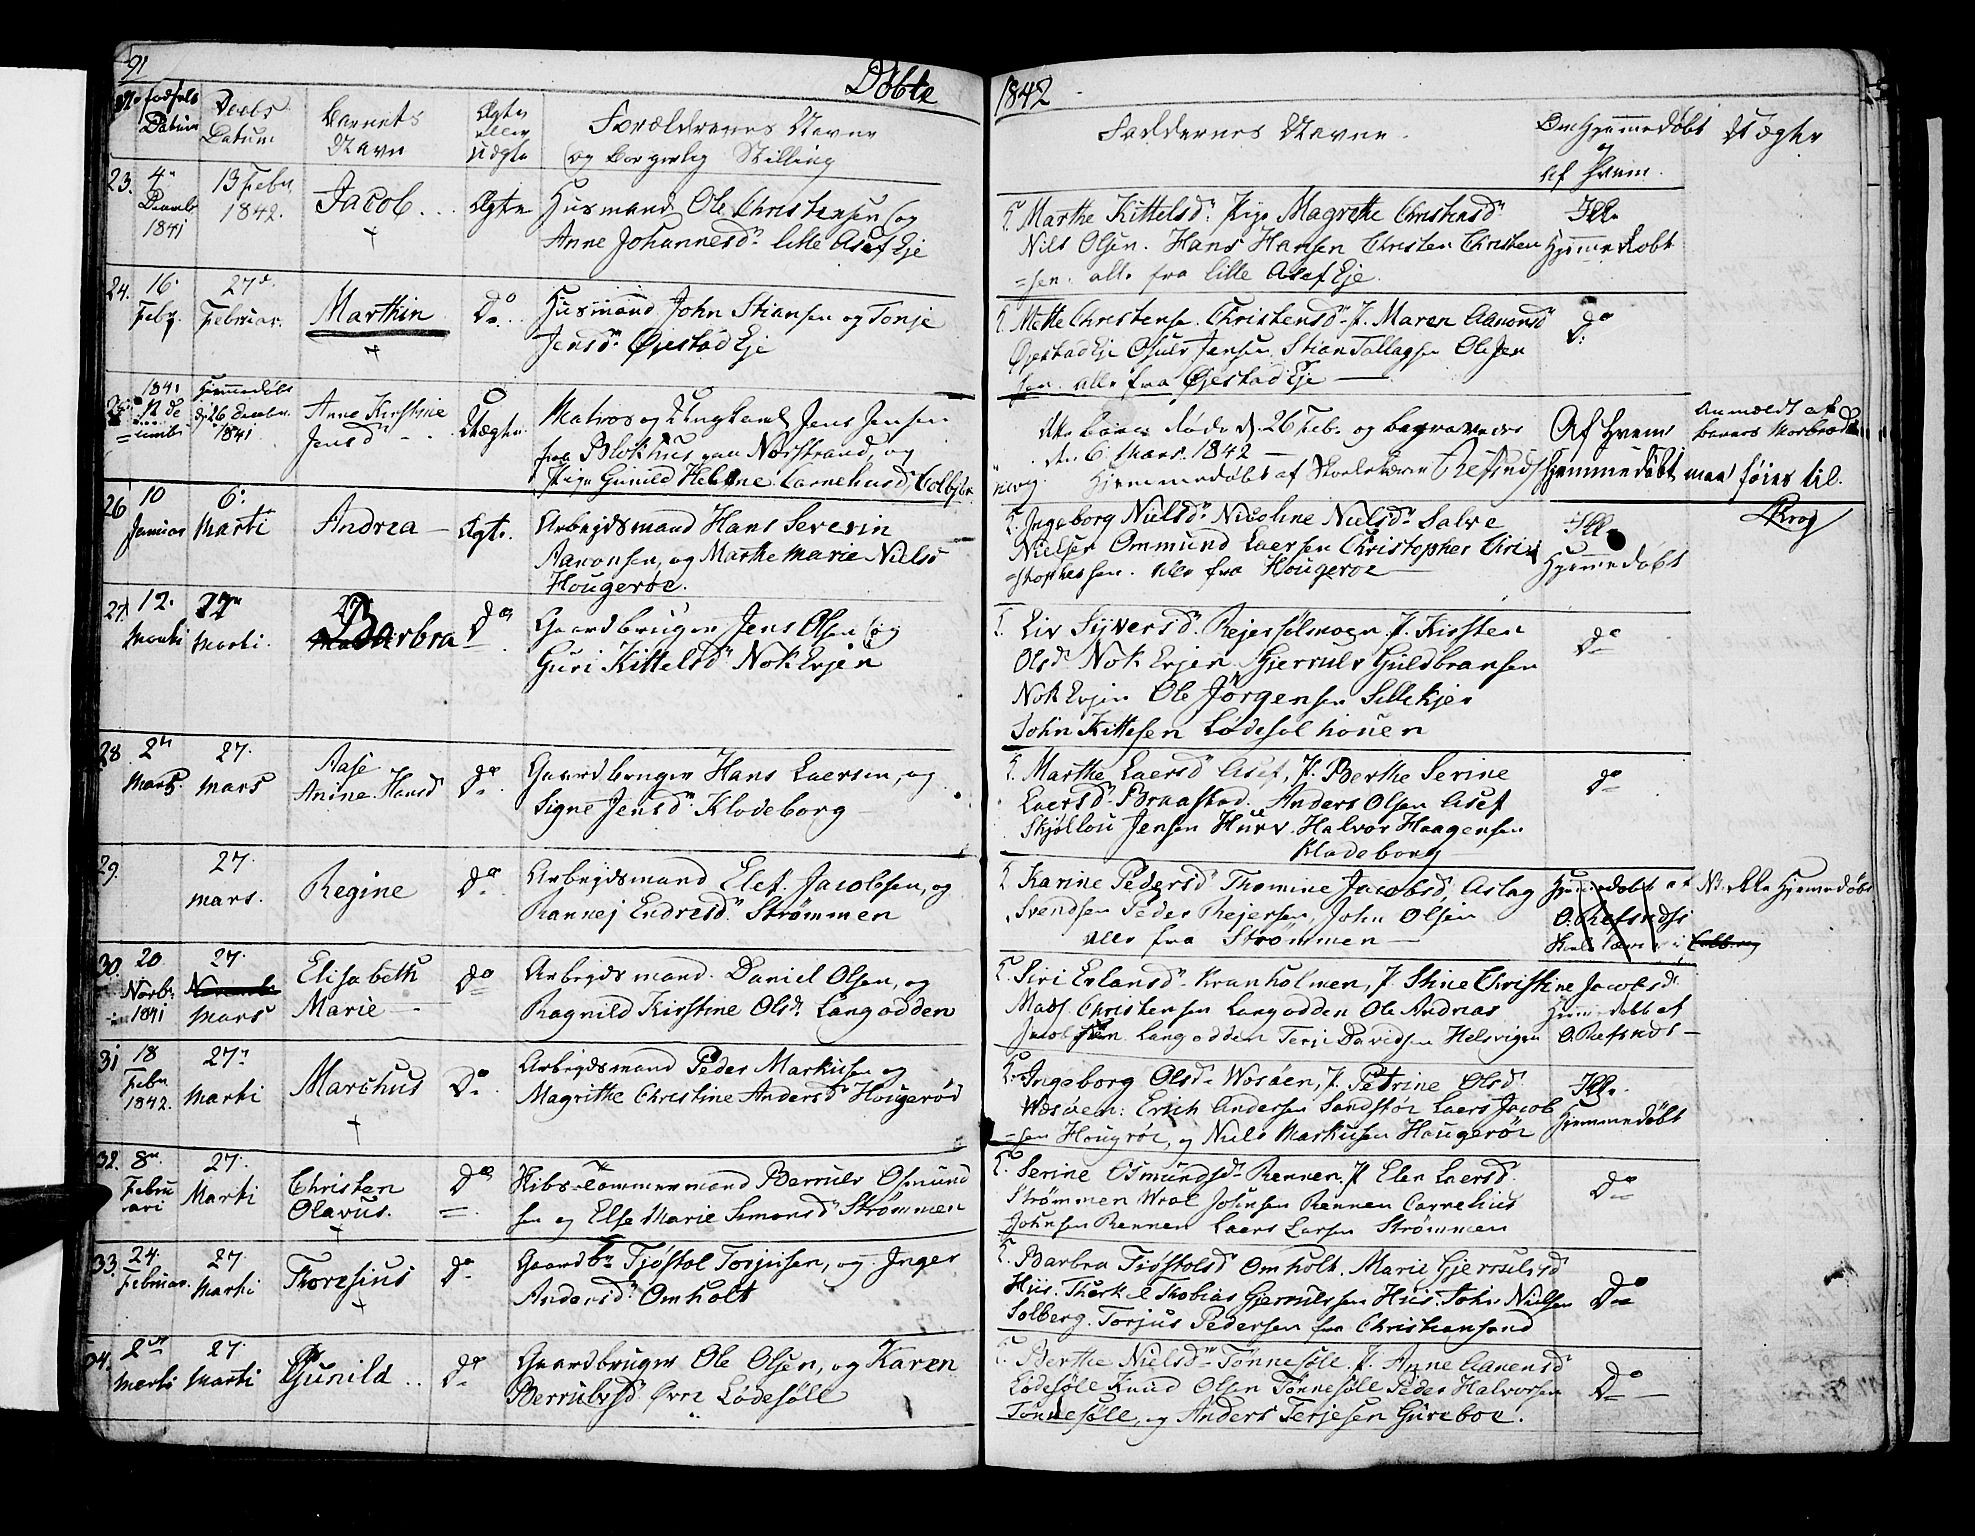 91 Døbte 1842
No Fødsels Datum
Daabs Datum
Barnets Navn
Ægte eller Uægte
Forældrenes Navne
og Borgerlig Stilling
Faddernes Navne.
Om Hjemmedøbt
af Hvem.
23. 4 Decembr 1841
13 Febr. 1842.
Jacob
Ægte
Husmand Ole Christensen og
Anne Johannesd. lille Asef Eje
Marthe Kittelsd. Pige Magrethe Christensd
Nils Olsen. Hans Hansen Christen Christen
=sen. alle fra lille Asef Eje.
Ikke
Hjemmedøbt
24. 16. Febr.
27 Februar.
Marthin
Do
Husmand John Stiansen og Tonje
Jensd. Øjestad Eje
Mette Christense. Christensd. P. Maren Aanonsd
Øjestad Eje Osuls Jensen Stian Tallagsen Ole Jen
sen. alle fra Øjestad Eje
Do
25. 1841 12 De
=cembr
Hjemmedøbt
d. 26 Decbr.
1841.
Anne Kirstine
Jensd
Uægte
Matros og Ungkarl Jens Jensen
fra Blokhus paa Norstrand, og
Pige Gunild Helene Corneliusd. Colbjbr.
dette barn døde d. 26 Feb. og begravedes
den 6. Mars. 1842
Hjemmedøbt af Skolelærer Refsnds
Af Hvem
Hjemmedøbt
Anmeldt af
barnets Morbroder
maa føies til.
Krog
26 10 Januar
6. Marti
Andrea
Ægte.
Arbejdsmand Hans Severin
Aanonsen, og Marthe Marie Niels
Hougerøe.
Ingeborg Nielsd. Nicoline Nielsd. Salve
Nielsen Ommund Laersen Christopher Chris
=stophersen. alle fra Hougeroe
Ikke
Hjemmedøbt
27. 12. Marti
27 Marti.
Barbra
Do
Gaardbruger Jens Olsen og
Guri Kittelsd. Nok Evjen
Liv Sijversd. Rejersølmoen. P. Kirsten
Olsd. Nok Evjen. Gjerruls Guldbransen
Nok Evjen Ole Jørgensen Sellekjer
John Kittesen Lødesol houen
Do
28 2 Mars.
27. Mars
Aase
Anine Hansd
Do
Gaardbruger Hans Laersen, og
Signe Jensd. Klodeborg
Marthe Laersd Asef, P. Berthe Serine
Laersd. Braastad. Anders Olsen Asef
Skjøllou Jensen Hurv. Halvor Haagensen
Klodeborg
Do
29.
27. mars.
Regine
Do
Arbejdsmand Elef. Jacobsen, og
Rannej Endresd. Strømmen
Karine Pedersd. Thomine Jacobsd, Aslag
Svendsen Peder Rejersen, John Olsen
alle fra Strømmen
Hjemmedøbt af
O. Refsnds
Skolelærer i
Nb. ikke Hjemmedøbt
30. 20 Novbr. 1841
27. Mars
Elisabeth
Marie
Do
Arbejdsmand. Daniel Olsen, og
Ragnild Kirstine Olsd. Langodden
Siri Erlansd. Kranholmen, P. Stine Christine Jacobsd.
Mads Christensen Langodden Ole Andreas
Jacobsen. Langodden Terje Davidsen Helsvigen
Hjemmedøbt af
O. Refsnds
31 18 Febr. 1842.
27 Marti
Marchus
Do
Arbejdsmand Peder Markusen og
Magrithe Christine Andersd. Hougerød
Ingeborg Olsd. Wosøen, P. Petrine Olsd
Wosøen: Erich Andersen Sandstøe Laers Jacob
=sen Hougrøe, og Niels Markusen Hougerøe
Ikke
Hjemmedøbt
32. 8 Febru
ari
27. Marti
Christen
Olavus.
Do
Skibs-tømmermand Berruls Osmund
sen og Else Marie Simonsd. Strømmen
Serine Osmundsd. Rennen. P. Elen Laersd.
Strømmen Wrol Johnsen Rennen Cornelius
Johnsen Rennen Laers Larsen Strømmen
Do
33. 24. Februar.
27 Marti
Thoresius
Do
Gaardbr. Tjøstol Torjusen, og Inger
Andersd. Omholt
Barbra Tiøstolsd Omholt. Marie Gjerrulsd
Hiis. Therkel Thobias Gjerrulsen Hiis. John Nielsen
Solberg. Torjus Pedersen fra Christiansand
Do
34. 2 Marti
27. Marti
Gunild
Do
Gaardbruger Ole Olsen, og Karen
Berrulvsd. Øvre Lødesøll
Berthe Nielsd. Tønnesøll. P. Anne Aanensd
Lødesøll Knud Olsen Tønnesøll Peder Halvorsen
Tønnesøll, og Anders Terjesen Gureboe.
Do